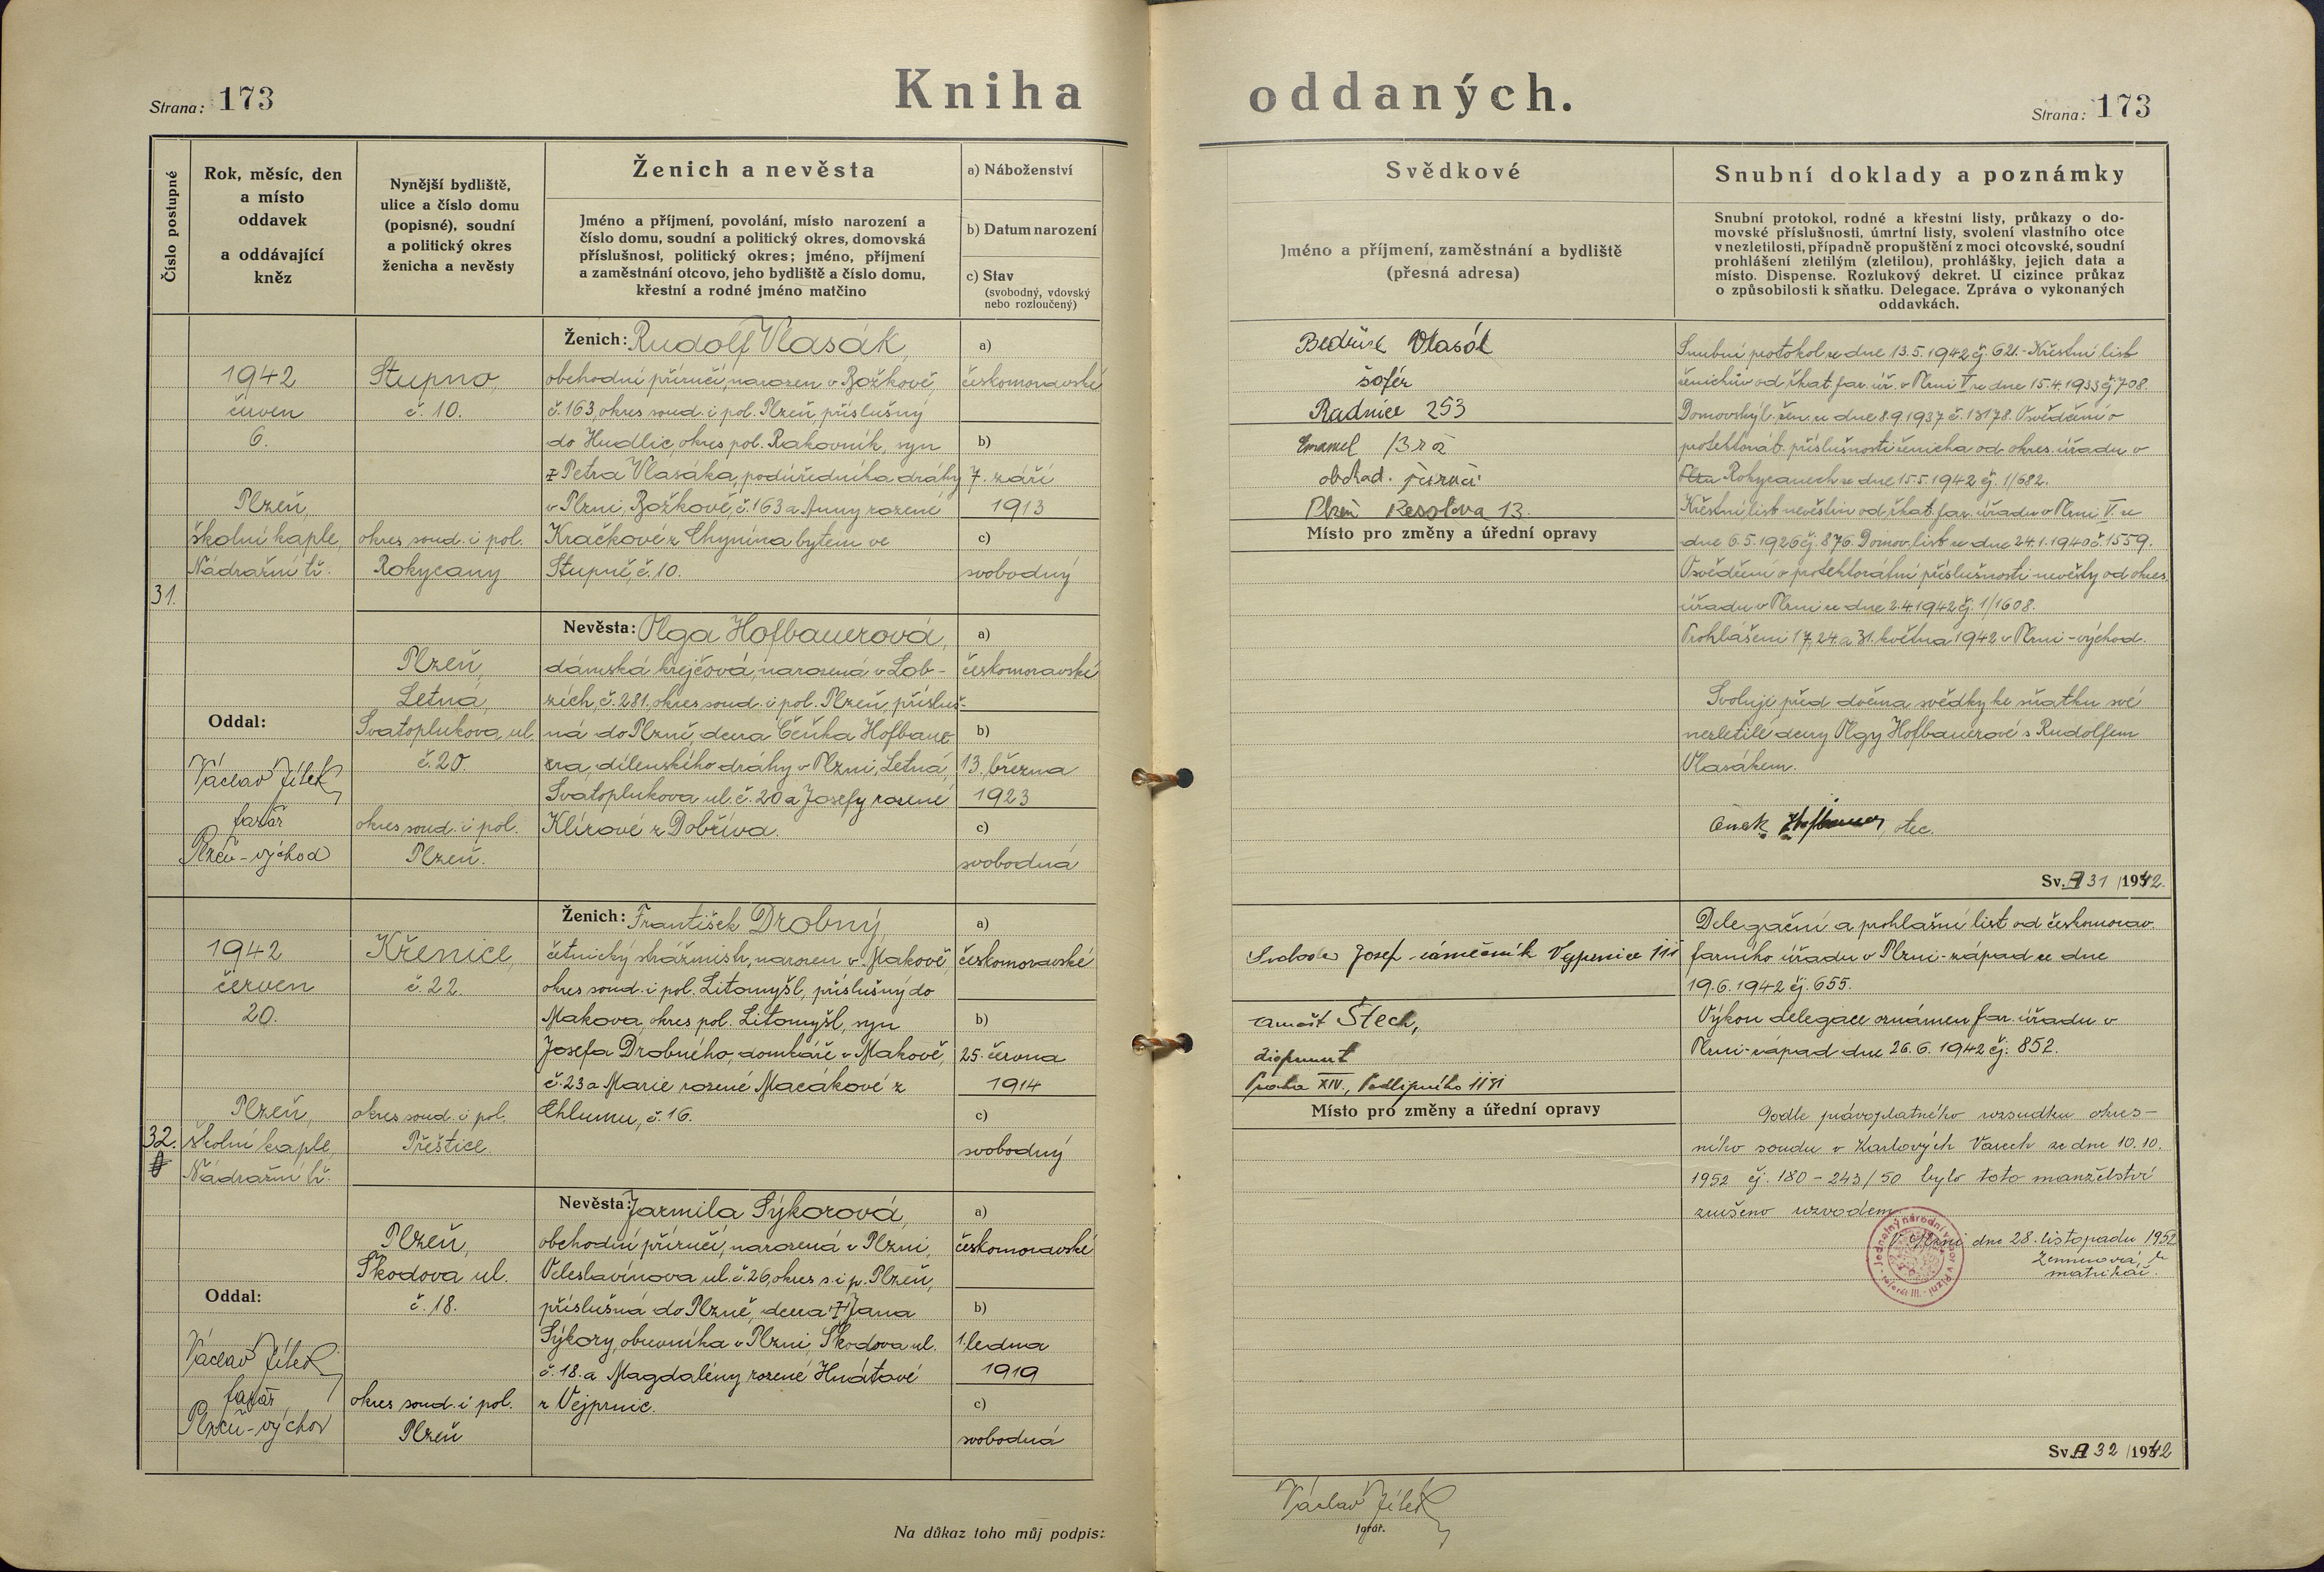 Strana: 173
Kniha oddaných.
Strana: 173
Číslo postupné
Rok, měsíc, den
a místo
oddavek
a oddávající
kněz
Nynější bydliště,
ulice a číslo domu
(popisné), soudní
a politický okres
ženicha a nevěsty
Ženich a nevěsta
Jméno a příjmení, povolání, místo narození a
číslo domu, soudní a politický okres, domovská
příslušnost, politický okres; jméno, příjmení
a zaměstnání otcovo, jeho bydliště a číslo domu,
křestní a rodné jméno matčino
a) Náboženství
b) Datum narození
c) Stav
(svobodný, vdovský
nebo rozloučený)
Svědkové
Jméno a příjmení, zaměstnání a bydliště
(přesná adresa)
Snubní doklady a poznámky
Snubní protokol, rodné a křestní listy, průkazy o do-
movské příslušnosti, úmrtní listy, svolení vlastního otce
v nezletilosti, případně propuštění z moci otcovské, soudní
prohlášení zletilým (zletilou), prohlášky, jejich data a
místo. Dispense. Rozlukový dekret. U cizince průkaz
o způsobilosti k sňatku. Delegace. Zpráva o vykonaných
oddavkách.
31.
1942
červen
6.
Plzeň,
školní kaple,
Nádražní tř.
Oddal:
Václav Jílek
farář
Plzeň-východ
Stupno,
č. 10.
okres soud. i pol.
Rokycany
Plzeň,
Letná,
Svatoplukova ul.
č. 20.
okres soud. i pol.
Plzeň.
Ženich: Rudolf Vlasák,
obchodní příručí, narozen v Božkově,
č. 163, okres soud. i pol. Plzeň, příslušný
do Hudlic, okres pol. Rakovník, syn
Petra Vlasáka, podúředníka dráhy
v Plzni, Božkově, č. 163 a Anny rozené
Kračkové z Chynína bytem ve
Stupně, č. 10.
Nevěsta: Olga Hofbauerová,
dámská krejčová, narozená v Lob-
zích, č. 281, okres soud. i pol. Plzeň, přísluš-
ná do Plzně, dcera Čeňka Hofbaue-
ra, dílenského dráhy v Plzni, Letná,
Svatoplukova ul. č. 20 a Josefy rozené
Klírové z Dobříva.
a)
českomoravské
b)
7. září
1913
c)
svobodný
a)
českomoravské
b)
13. března
1923
c)
svobodná
Bedřich Vlasák
šofér
Radnice 253
Emanuel
obchod. příručí
Plzeň Resslova 13.
Místo pro změny a úřední opravy
Snubní protokol ze dne 13.5.1942 čj. 621.- Křestní list
ženichův od řkat. far. úř. v Plzni V ze dne 15.4.1933 čj. 708.
Domovský l. žen. ze dne 8.9.1937 č. 13178. Osvědčení o
protektorát. příslušnosti ženicha od okres. úřadu v
Rokycanech ze dne 15.5.1942 čj. 1/682.
Křestní list nevěstin od řkat. far. úřadu v Plzni V. ze
dne 6.5.1926 čj. 876. Domov. list ze dne 24.1.1940 č. 1559.
Osvědčení o protektorátní příslušnosti nevěsty od okres.
úřadu v Plzni ze dne 2.4.1942 čj. 1/1608.
Prohlášeni 17., 24. a 31. května 1942 v Plzni-východ.
Svoluji před dvěma svědky ke sňatku své
nezletilé dcery Olgy Hofbauerové s Rudolfem
Vlasákem.
Čeněk Hofbauer, otec.
Sv. A 31 /1942.
32.
1942
červen
20.
Plzeň,
školní kaple,
Nádražní tř.
Oddal:
Václav Jílek
farář
Plzeň-východ
Křenice,
č. 22.
okres soud. i pol.
Přeštice.
Plzeň,
Škodova ul.
č. 18.
okres soud. i pol.
Plzeň
Ženich: František Drobný,
četnický strážmistr, narozen v Makově,
okres soud. i pol. Litomyšl, příslušný do
Makova, okres pol. Litomyšl, syn
Josefa Drobného, domkáře v Makově,
č. 23 a Marie rozené Macákové z
Chlumu, č. 16.
Nevěsta: Jarmila Sýkorová,
obchodní příručí, narozená v Plzni,
Veleslavínova ul. č. 26, okres s. i p. Plzeň,
příslušná do Plzně, dcera † Jana
Sýkory, obuvníka v Plzni, Škodova ul.
č. 18. a Magdalény rozené Hnátové
z Vejprnic.
a)
českomoravské
b)
25. června
1914
c)
svobodný
a)
českomoravské
b)
1. ledna
1919
c)
svobodná
Svoboda Josef zámečník Vejprnice 111
Arnošt Štech,
Praha XIV., Podlipného 1151
Místo pro změny a úřední opravy
Delegační a prohlašní list od českomorav.
farního úřadu v Plzni-západ ze dne
19.6.1942 čj. 655.
Výkon delegace oznámen far. úřadu v
Plzni-západ dne 26.6.1942 čj. 852.
Podle právoplatného rozsudku okres-
ního soudu v Karlových Varech ze dne 10.10.
1952 čj. 180-243/50 bylo toto manželství
zrušeno rozvodem.
V Plzni dne 28. listopadu 1952
matrikář.
Jednotný národní výbor v Plzni
referát III.
Sv. A 32 /1942
Na důkaz toho můj podpis:
Václav Jílek
farář.